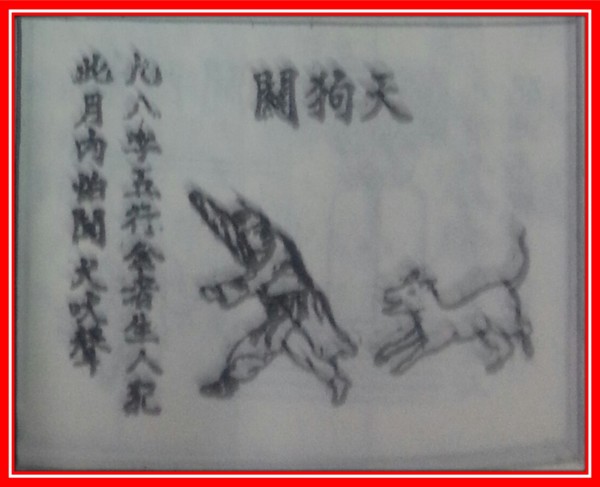 天狗關
凡八字五行金者生人犯
此月內怕聞犬吠聲